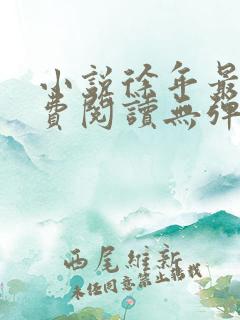 小説徐年最
費閱讀無彈
西尾維新
未經同意禁止轉載